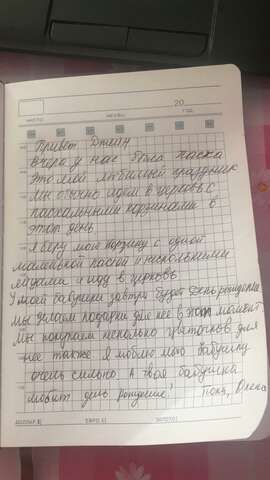 20
ЧИСЛО МЕСЯЦ ГОД
Привет Джейн
Вчера у нас была пасха
Это мой любимый праздник
Мы обычно идем в церковь с
пасхальными корзинами в
этот день
Я беру мою корзину с одной
маленькой пасхой и несколькими
яйцами и иду в церковь
У моей бабушки завтра будет День рождения
Мы делаем подарки для нее в этот момент
Мы покупаем несколько цветочков для
нее также Я люблю мою бабушку
очень сильно А твоя бабушка
любит день рождение? Пока,